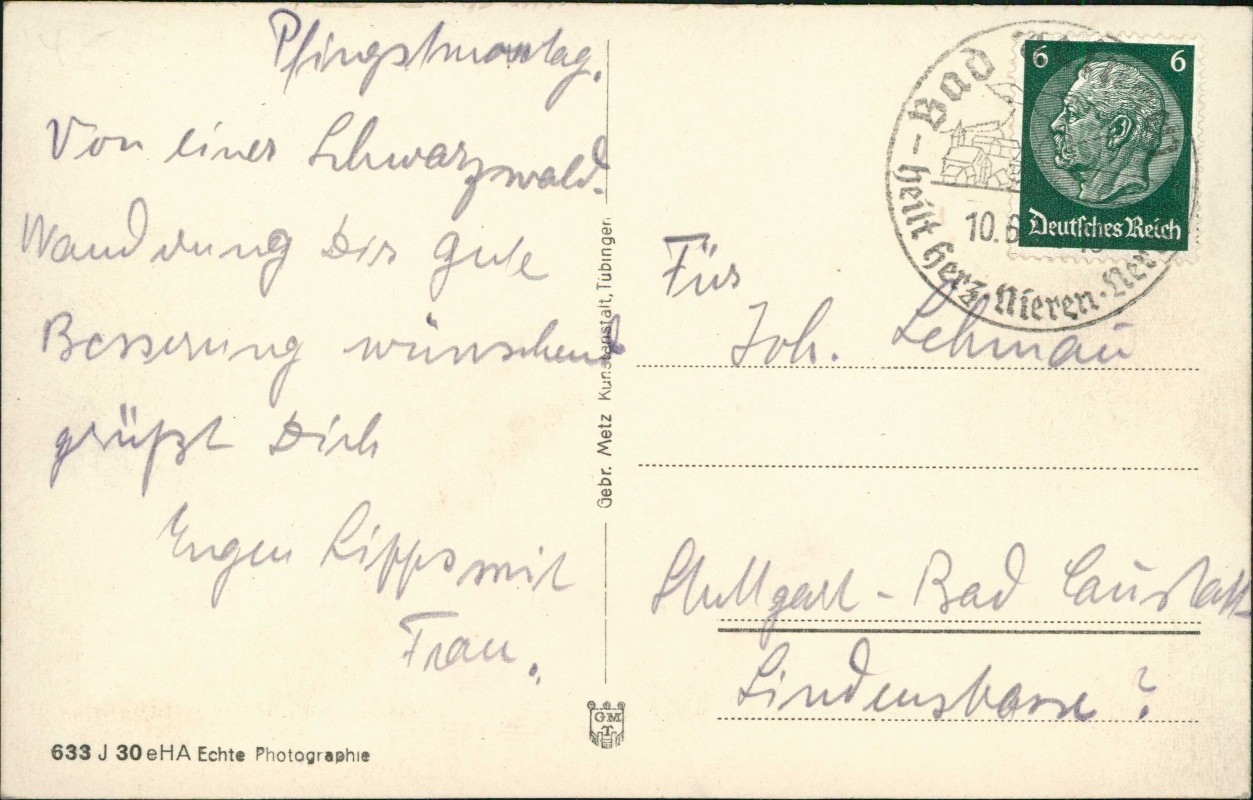 Pfingstmontag.
Von einer Schwarzwald-
Wanderung Dir gute
Besserung wünschend
grüßt Dich
Eugen Lipps mit
Frau.
633 J 30 eHA Echte Photographie
Gebr. Metz Kunstanstalt, Tübingen
GM
T
Bad
heilt Herz-Nieren-Ner
10.6
6 6
Deutsches Reich
Für
Joh. Lehmau
Stuttgart - Bad Caustatt
Lindenstrasse ?